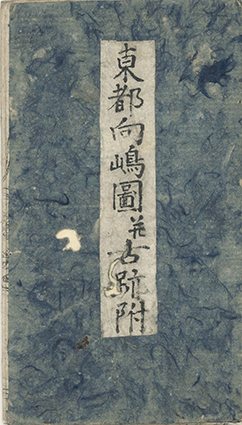 東都向嶋圖并古跡附